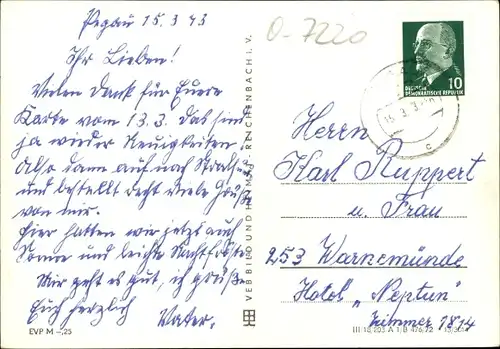 Pegau 15.3.73
Ihr Lieben!
Vielen Dank für Eure
Karte vom 13.3. Das sind
ja wieder Neuigkeiten.
Also dann auf nach
und bestellt recht viele Grüße
von mir.
Hier hatten wir jetzt auch
Sonne und leichte Nachtfröste
Mir geht es gut, ich grüße
Euch herzlich Vater.
EVP M –,25
VEB BILD UND HEIMAT REICHENBACH I. V.
O-7220
10
DEUTSCHE
DEMOKRATISCHE REPUBLIK
Herrn
Karl Ruppert
u. Frau
253 Warnemünde
Hotel „Neptun"
Zimmer 1814
III/18/203 A 1/B 476/72